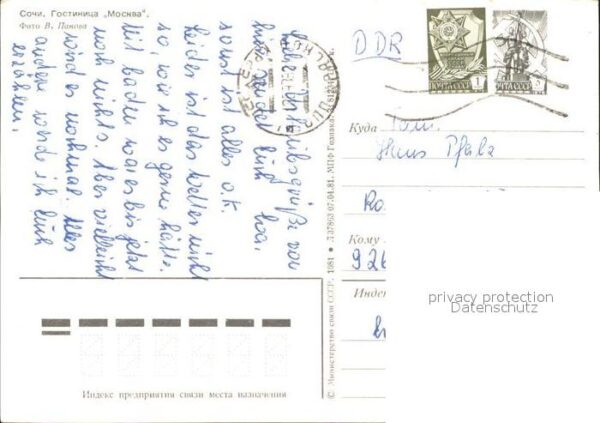 Сочи, Гостиница „Москва".
Фото В. Панова
DDR
1
ПОЧТА СССР
5
ПОЧТА СССР
Liebe Urlaubsgrüße von
hier sendet Euch
sonst ist alles o.k.
leider ist das Wetter nicht
so, wie ich es gerne hätte.
Mit baden war es bis jetzt
noch nichts. Aber vielleicht
wird es nochmal. Alles
andere werde ich Euch
erzählen.
Куда
Fam.
Pfalz
Кому
Индекс
Индекс предприятия связи места назначения
© Министерство связи СССР. 1981
07.04.81. МПФ Гознака.
privacy protection
Datenschutz